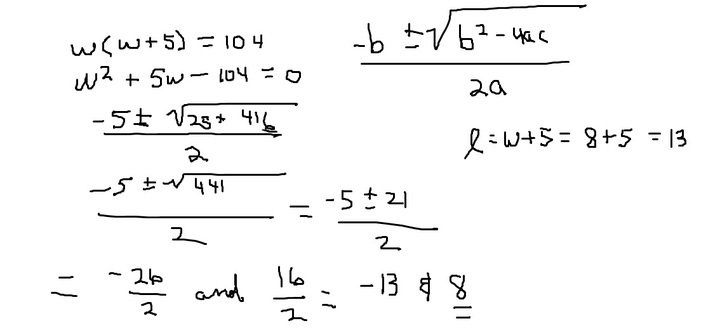 w(w+5) = 104
w² + 5w - 104 = 0
(-5 ± √(25 + 416))/2
(-5 ± √441)/2 = (-5 ± 21)/2
= -26/2 and 16/2 = -13 & 8
(-b ± √(b² - 4ac))/2a
l = w+5 = 8+5 = 13